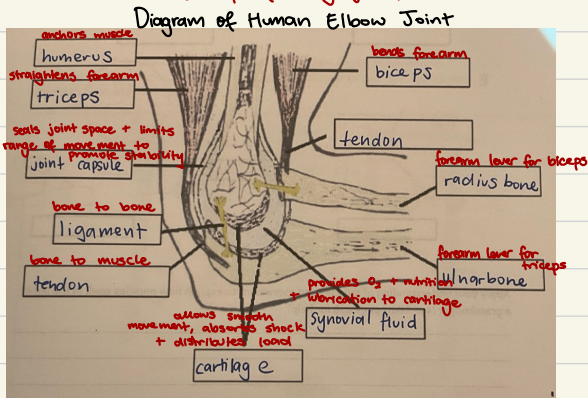 Diagram of Human Elbow Joint
anchors muscle
humerus
straightens forearm
triceps
seals joint space + limits
range of movement to
promote stability
joint capsule
bone to bone
ligament
bone to muscle
tendon
bends forearm
biceps
tendon
forearm lever for biceps
radius bone
forearm lever for
triceps
Ulnarbone
provides O₂ + nutrition
+ lubrication to cartilage
synovial fluid
allows smooth
movement, absorbs shock
+ distributes load
cartilage